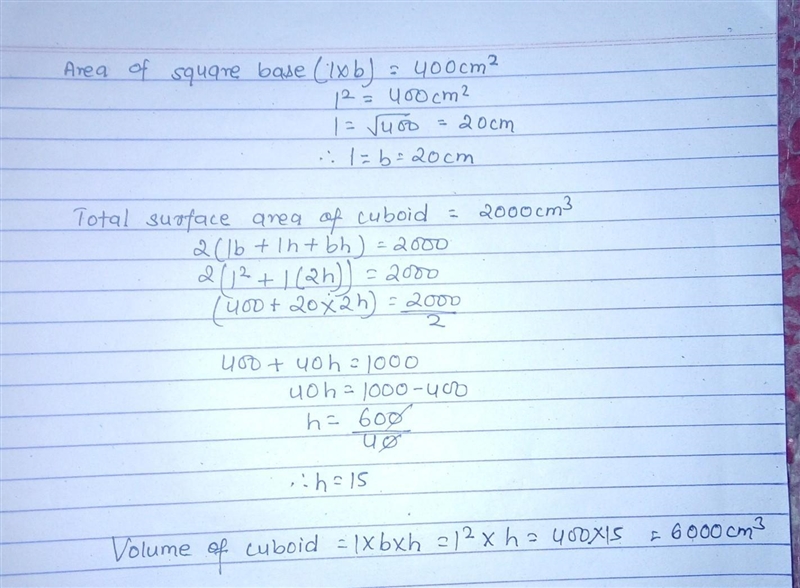 Area of square base (l×b) = 400cm²
l² = 400cm²
l = √400 = 20cm
∴ l = b = 20cm
Total surface area of cuboid = 2000cm³
2(lb + lh + bh) = 2000
2(l² + l(2h)) = 2000
(400 + 20×2h) = 2000/2
400 + 40h = 1000
40h = 1000 - 400
h = 600/40
∴ h = 15
Volume of cuboid = l×b×h = l² × h = 400×15 = 6000cm³